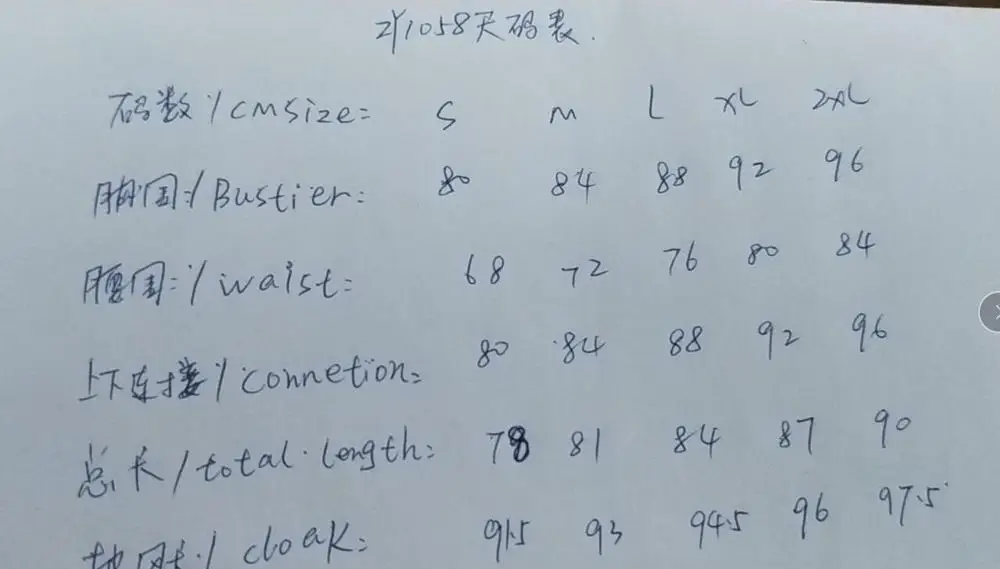 ZY1058尺码表.
码数/cmsize: S M L XL 2XL
胸围:/Bustier: 80 84 88 92 96
腰围:/waist: 68 72 76 80 84
上下连接/connetion: 80 84 88 92 96
总长/total.length: 78 81 84 87 90
/cloak: 91.5 93 94.5 96 97.5